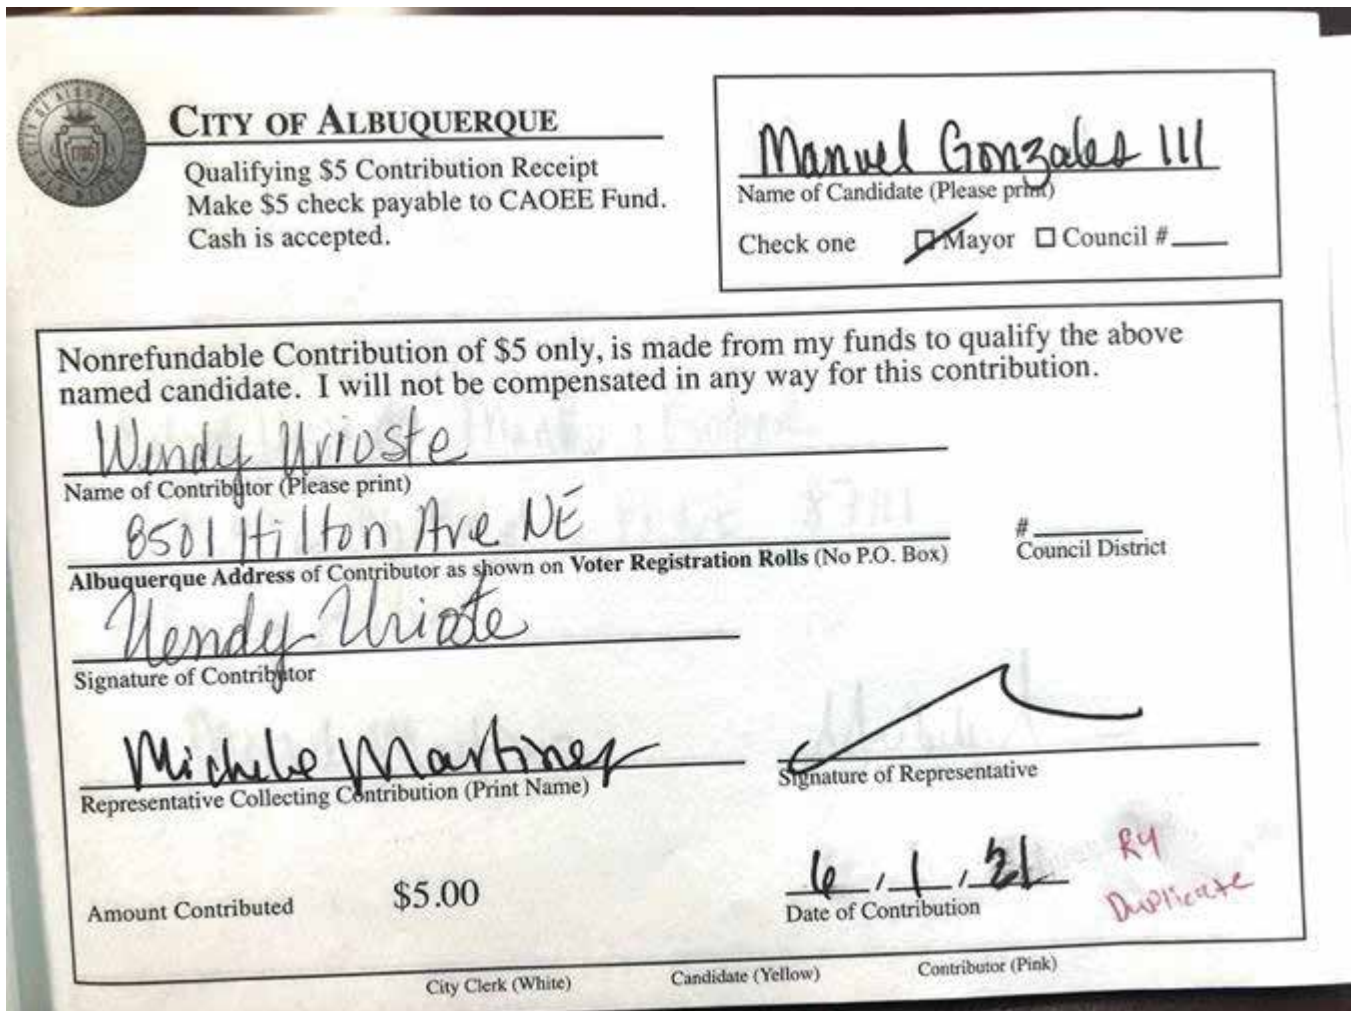 CITY OF ALBUQUERQUE
Qualifying $5 Contribution Receipt
Make $5 check payable to CAOEE Fund.
Cash is accepted.
Manuel Gonzales III
Name of Candidate (Please print)
Check one Mayor Council #
Nonrefundable Contribution of $5 only, is made from my funds to qualify the above
named candidate. I will not be compensated in any way for this contribution.
Wendy Urioste
Name of Contributor (Please print)
8501 Hilton Ave NE
#
Albuquerque Address of Contributor as shown on Voter Registration Rolls (No P.O. Box)
Council District
Wendy Urioste
Signature of Contributor
Michele Martinez
Representative Collecting Contribution (Print Name)
Signature of Representative
Amount Contributed $5.00
6, 1, 21
Date of Contribution
R4
Duplicate
City Clerk (White) Candidate (Yellow) Contributor (Pink)